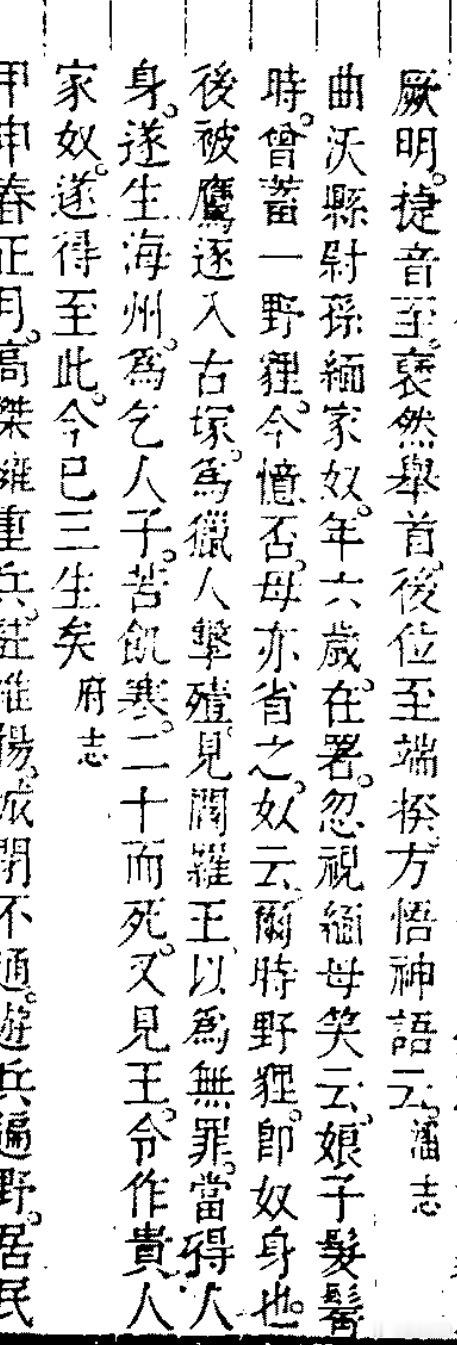 厥明。捷音至。裒然舉首。後位至端揆。方悟神語云。瀋志
曲沃縣尉孫緬家奴。年六歲。在署。忽視緬母笑云。娘子髮鬌
時。曾蓄一野貍。今憶否。母亦省之。奴云。爾時野貍。卽奴身也。
後被鷹逐入古塚。爲獵人擊殪。見閻羅王。以爲無罪。當得人
身。遂生海州。爲乞人子。苦飢寒。二十而死。又見王。令作貴人
家奴。遂得至此。今已三生矣 府志
甲申春正月。高傑擁重兵。駐維揚。城閉不通。遊兵遍野。居民